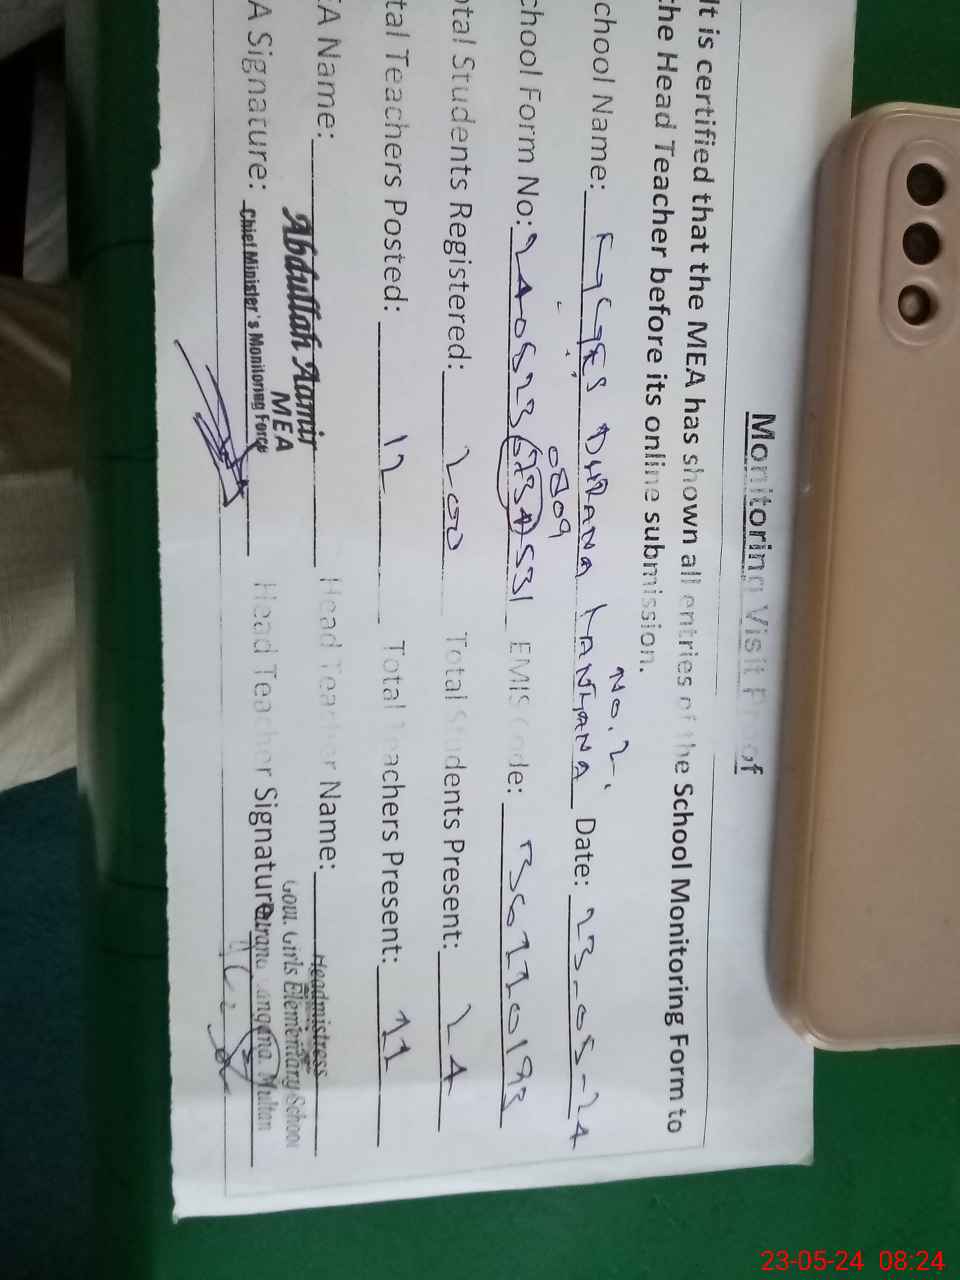 Monitoring Visit Proof
It is certified that the MEA has shown all entries of the School Monitoring Form to
the Head Teacher before its online submission.
No. 2
chool Name: DHRANA LANGANA Date: 23-05-24
0809
chool Form No: EMIS Code:
otal Students Registered: 200 Total Students Present: 24
tal Teachers Posted: 12 Total Teachers Present: 11
EA Name: Abdullah Aamir MEA Head Teacher Name: Headmistress
Govt. Girls Elementary School
A Signature: Chief Minister's Monitoring Force Head Teacher Signature Multan
23-05-24 08:24